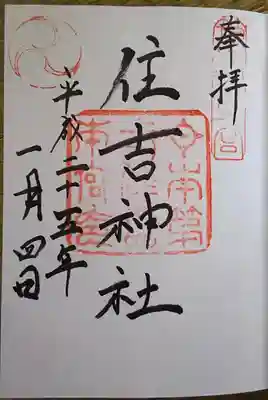 奉拝
住吉神社
平成二十五年
一月四日